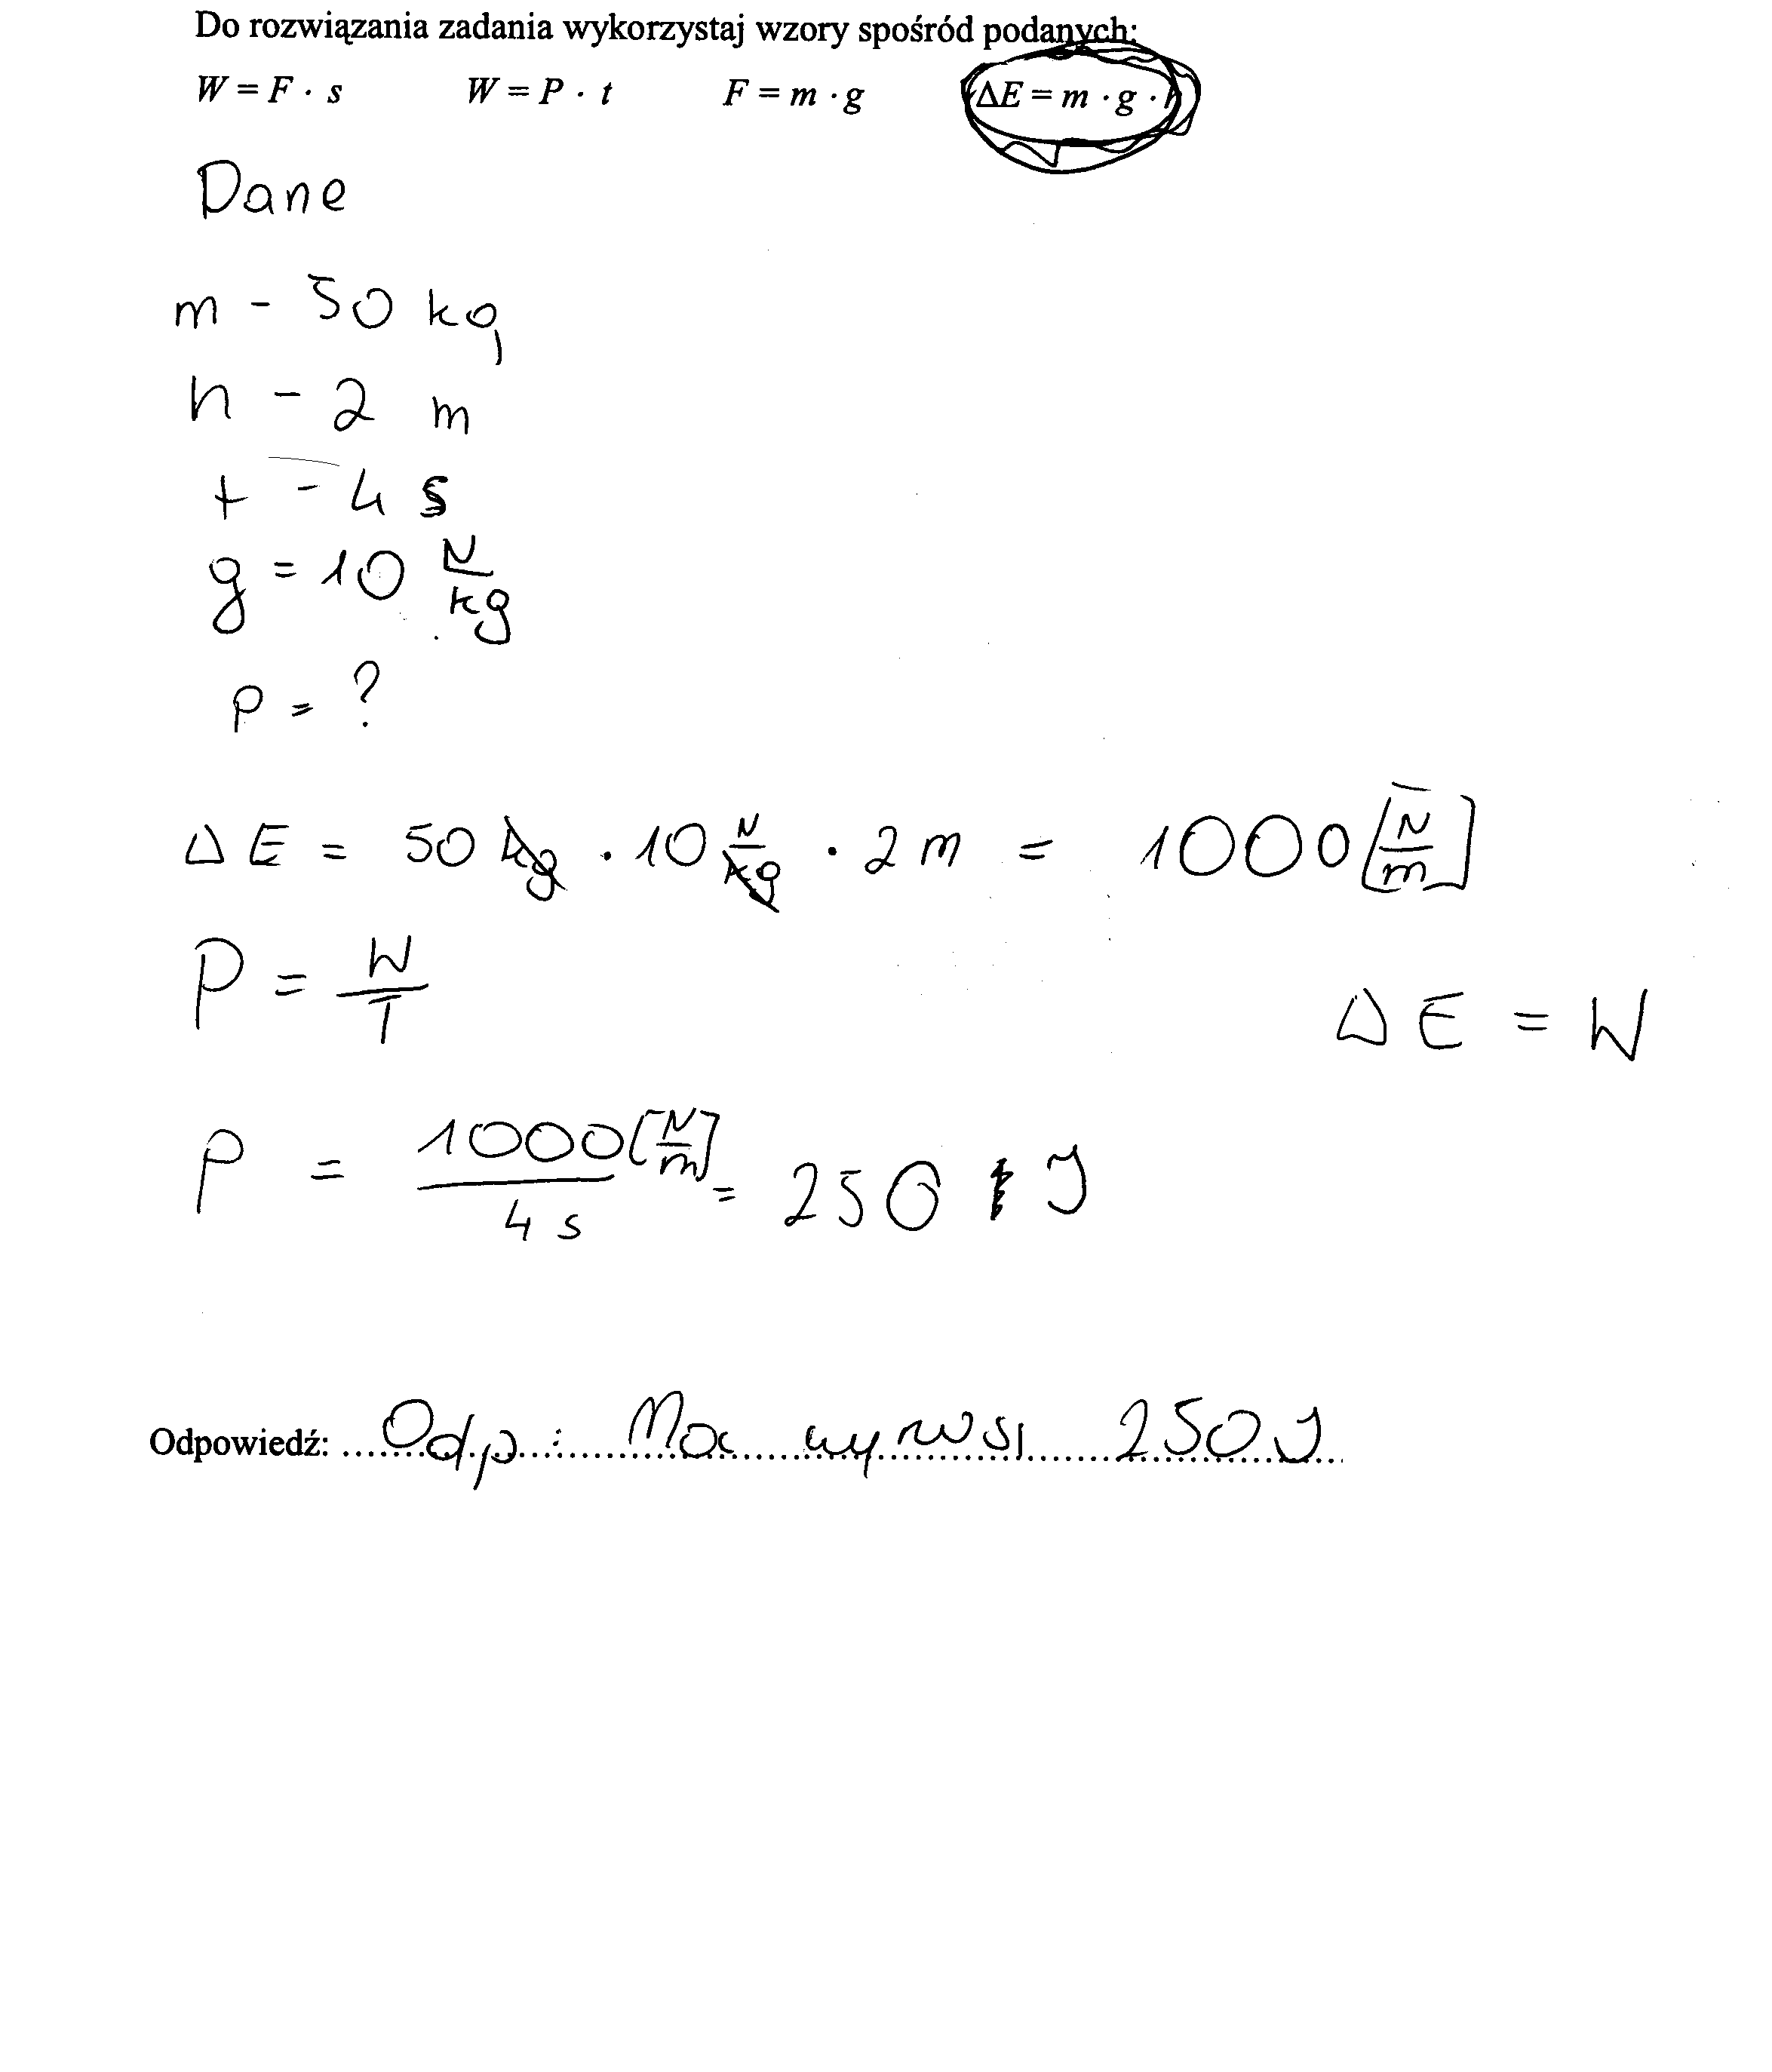 Do rozwiązania zadania wykorzystaj wzory spośród podanych:
W = F · s W = P · t F = m · g ΔE = m · g · h
Dane
m - 50 kg
h - 2 m
t - 4 s
g = 10 N/kg
P = ?
Δ E = 50 kg · 10 N/kg · 2 m = 1000 [N/m]
P = W/T Δ E = W
P = 1000 [N/m] / 4 s = 250 J
Odpowiedź: Odp: Moc wynosi 250 J